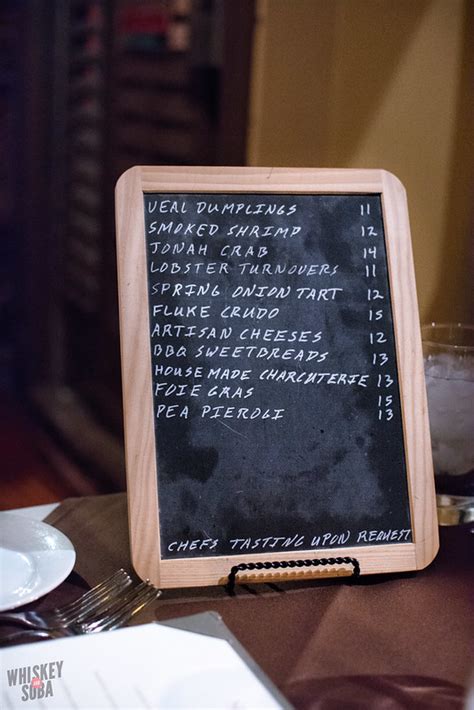 VEAL DUMPLINGS 11
SMOKED SHRIMP 12
JONAH CRAB 14
LOBSTER TURNOVERS 11
SPRING ONION TART 12
FLUKE CRUDO 15
ARTISAN CHEESES 12
BBQ SWEETBREADS 13
HOUSEMADE CHARCUTERIE 13
FOIE GRAS 15
PEA PIEROGI 13
CHEFS TASTING UPON REQUEST
WHISKEY
AND
SOBA